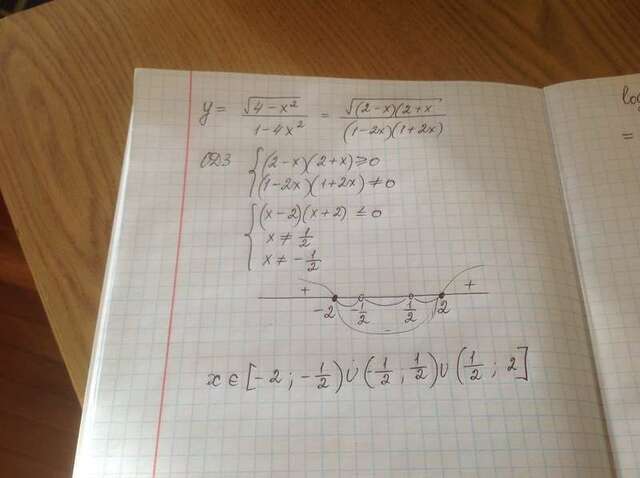 y = √(4 - x²) / (1 - 4x²) = √((2-x)(2+x) / ((1-2x)(1+2x))
ОДЗ { (2-x)(2+x) ≥ 0
(1-2x)(1+2x) ≠ 0
{ (x-2)(x+2) ≤ 0
x ≠ 1/2
x ≠ -1/2
+ - +
-2 -1/2 1/2 2
x ∈ [-2 ; -1/2) ∪ (-1/2 ; 1/2) ∪ (1/2 ; 2]
log
=